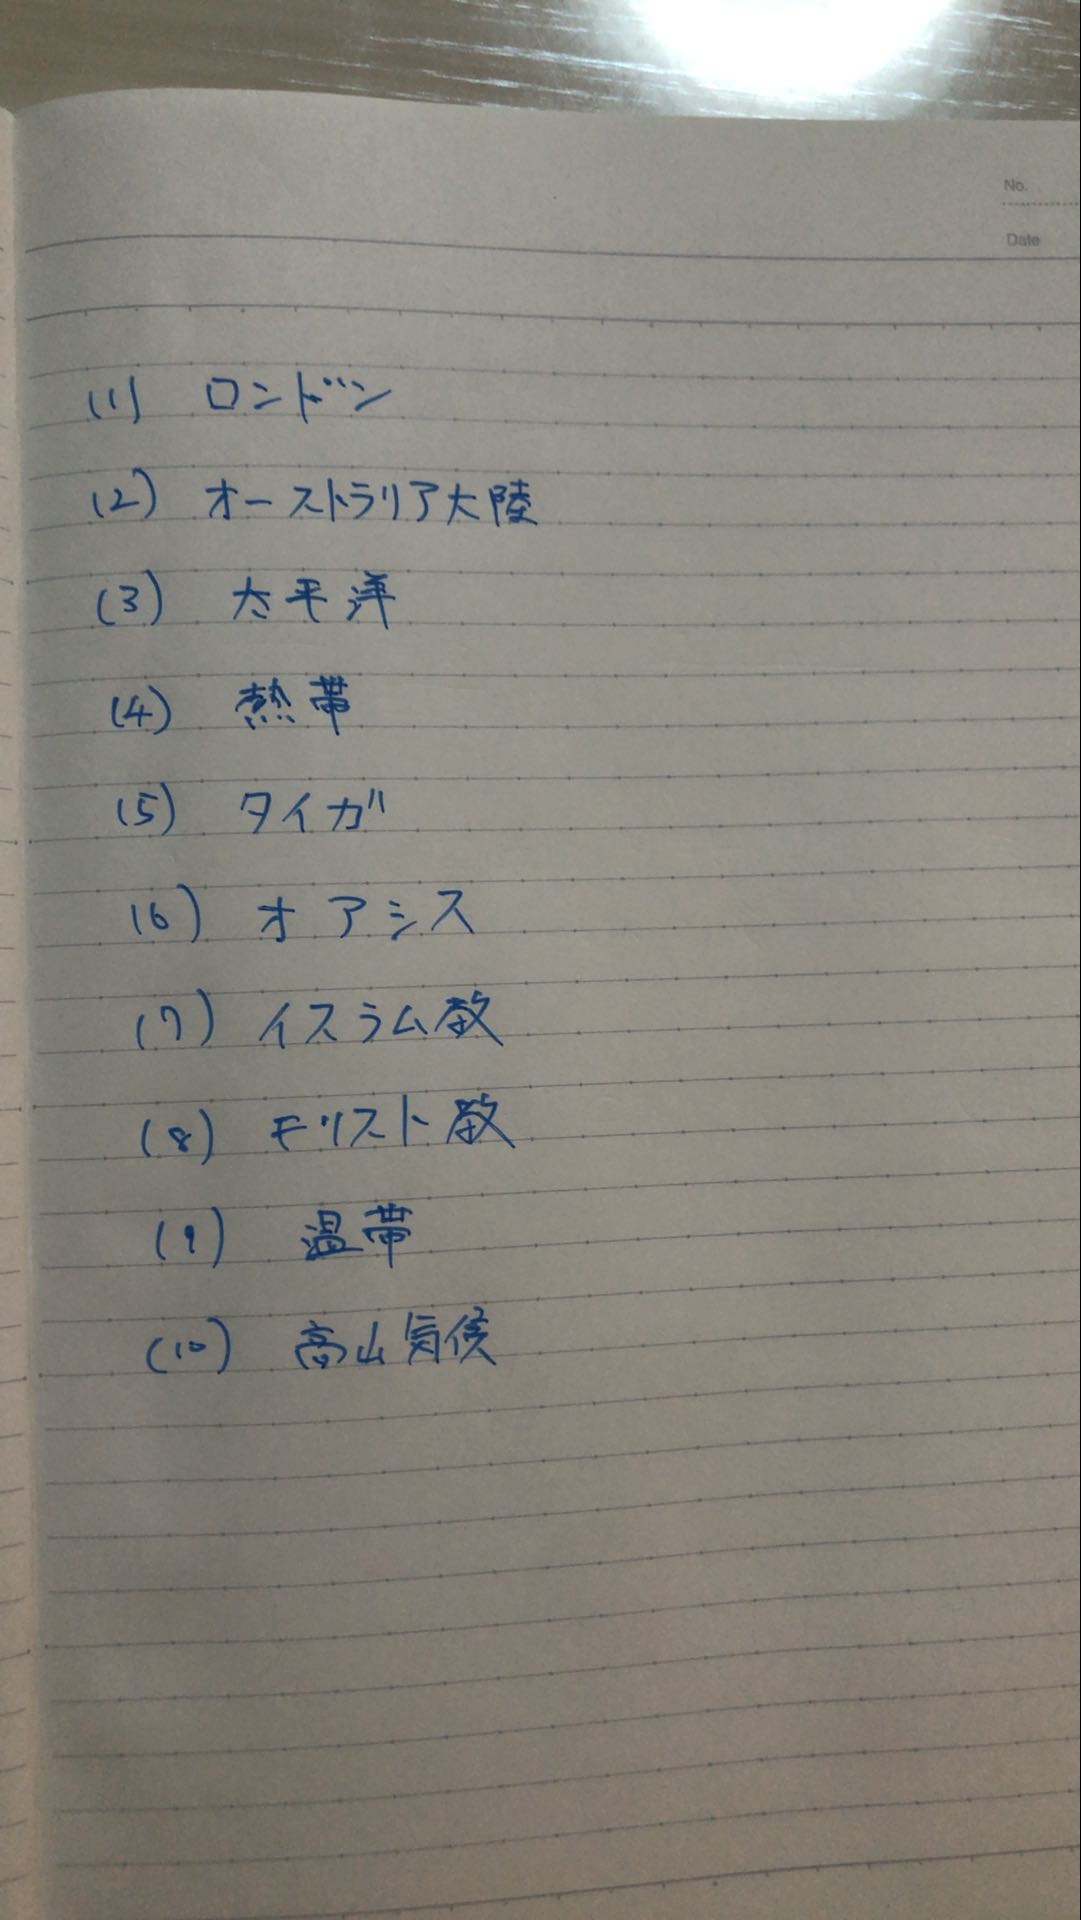 No.
Date
(1) ロンドン
(2) オーストラリア大陸
(3) 太平洋
(4) 熱帯
(5) タイガ
(6) オアシス
(7) イスラム教
(8) キリスト教
(9) 温帯
(10) 高山気候